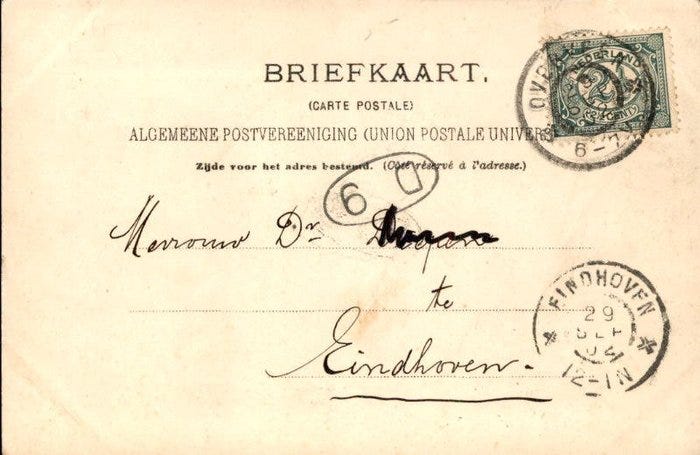 BRIEFKAART.
(CARTE POSTALE)
ALGEMEENE POSTVEREENIGING (UNION POSTALE UNIVERS
Zijde voor het adres bestemd. (Côté réservé à l'adresse.)
NEDERLAND
2½
CENT
6-7
D 9
Mevrouw Dr
te
Eindhoven.
EINDHOVEN
29
SEP
12-1N